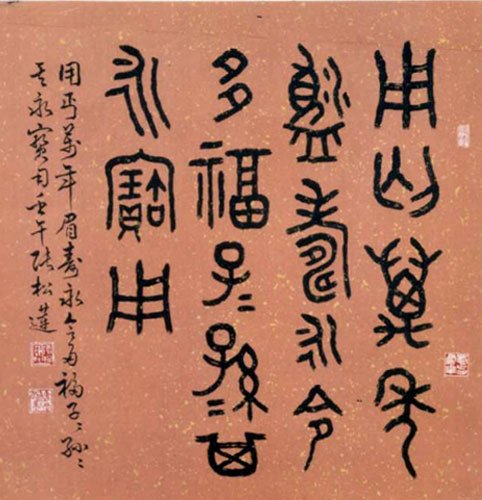 用丐萬年
眉壽永令
多福子〻孫〻其
永寶用
用丐萬年眉壽永令多福子〻孫〻
其永寶用壬午張松蓮